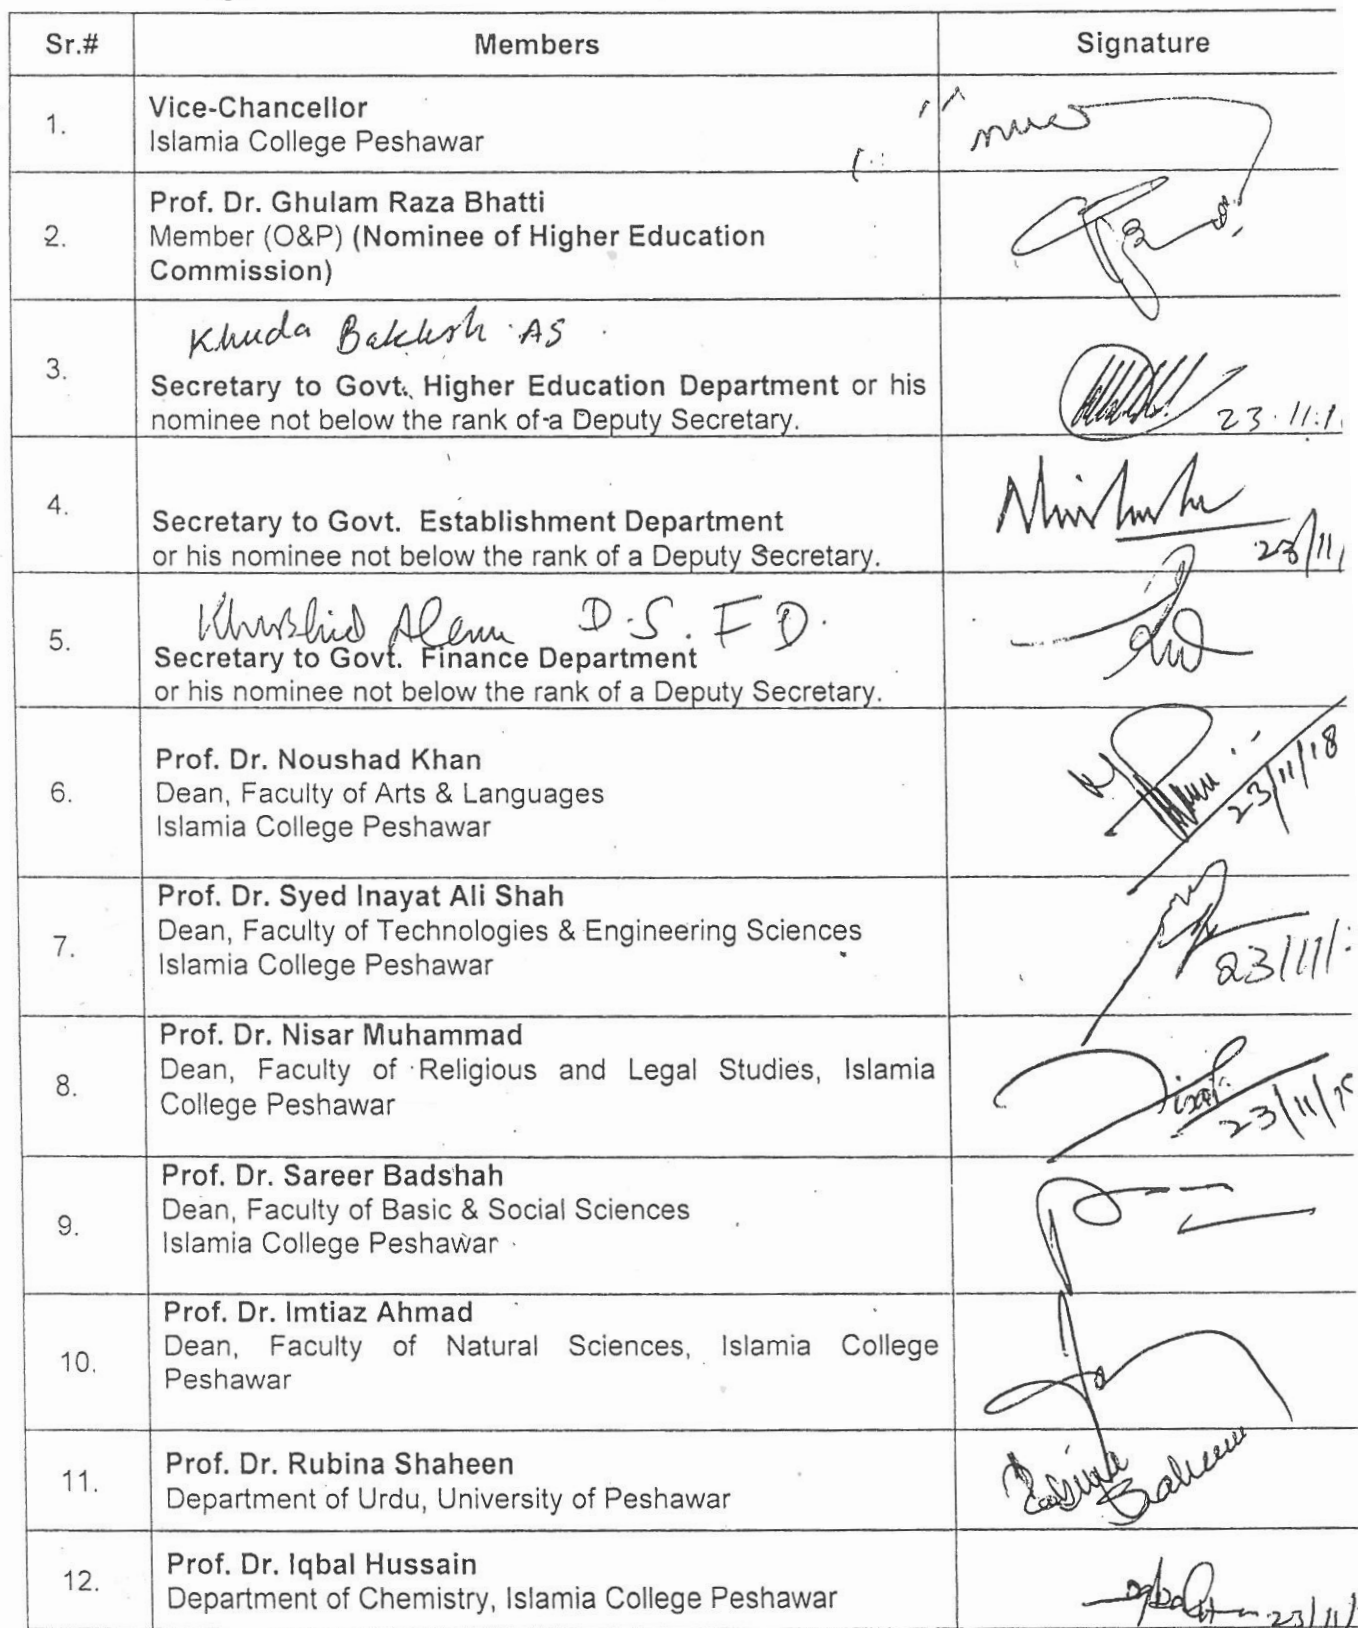 Sr.# Members Signature
1. Vice-Chancellor
Islamia College Peshawar
2. Prof. Dr. Ghulam Raza Bhatti
Member (O&P) (Nominee of Higher Education
Commission)
Khuda Bakhsh AS
3. Secretary to Govt. Higher Education Department or his
nominee not below the rank of a Deputy Secretary.
23.11.1
4. Secretary to Govt. Establishment Department
or his nominee not below the rank of a Deputy Secretary.
23/11/
Khurshid Alam D.S. F D.
5. Secretary to Govt. Finance Department
or his nominee not below the rank of a Deputy Secretary.
6. Prof. Dr. Noushad Khan
Dean, Faculty of Arts & Languages
Islamia College Peshawar
23/11/18
7. Prof. Dr. Syed Inayat Ali Shah
Dean, Faculty of Technologies & Engineering Sciences
Islamia College Peshawar
23/11/
8. Prof. Dr. Nisar Muhammad
Dean, Faculty of Religious and Legal Studies, Islamia
College Peshawar
23/11/
9. Prof. Dr. Sareer Badshah
Dean, Faculty of Basic & Social Sciences
Islamia College Peshawar
10. Prof. Dr. Imtiaz Ahmad
Dean, Faculty of Natural Sciences, Islamia College
Peshawar
11. Prof. Dr. Rubina Shaheen
Department of Urdu, University of Peshawar
Rubina
Shaheen
12. Prof. Dr. Iqbal Hussain
Department of Chemistry, Islamia College Peshawar
23/11/